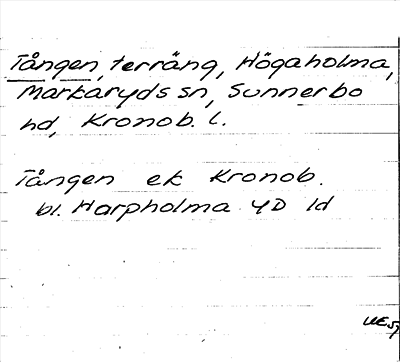 Tången, terräng, Högaholma,
Markaryds sn, Sunnerbo
hd, Kronob. l.
Tången ek Kronob.
bl. Harpholma 4D 1d